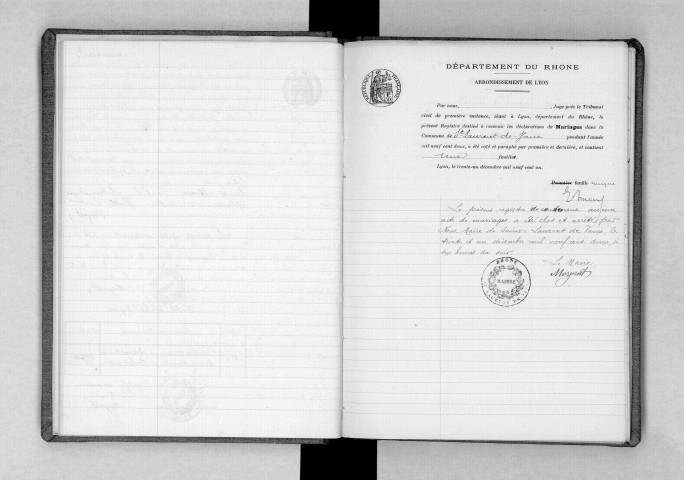 DÉPARTEMENT DU RHONE
ARRONDISSEMENT DE LYON
Par nous, , Juge près le Tribunal
civil de première instance, séant à Lyon, département du Rhône, le
présent Registre destiné à recevoir les déclarations de Mariages dans la
Commune de St Laurent-de-Vaux pendant l'année
mil neuf cent douze, a été coté et paraphé par première et dernière, et contient
une feuillet
Lyon, le trente-un décembre mil neuf cent un.
Dernière feuille unique
Le présent registre de contenant aucun
acte de mariages a été clos et arrêté par
Nous Maire de Saint Laurent de Vaux le
trente et un décembre mil neuf cent douze à
six heures du soir.
Le Maire
RHONE
MAIRIE